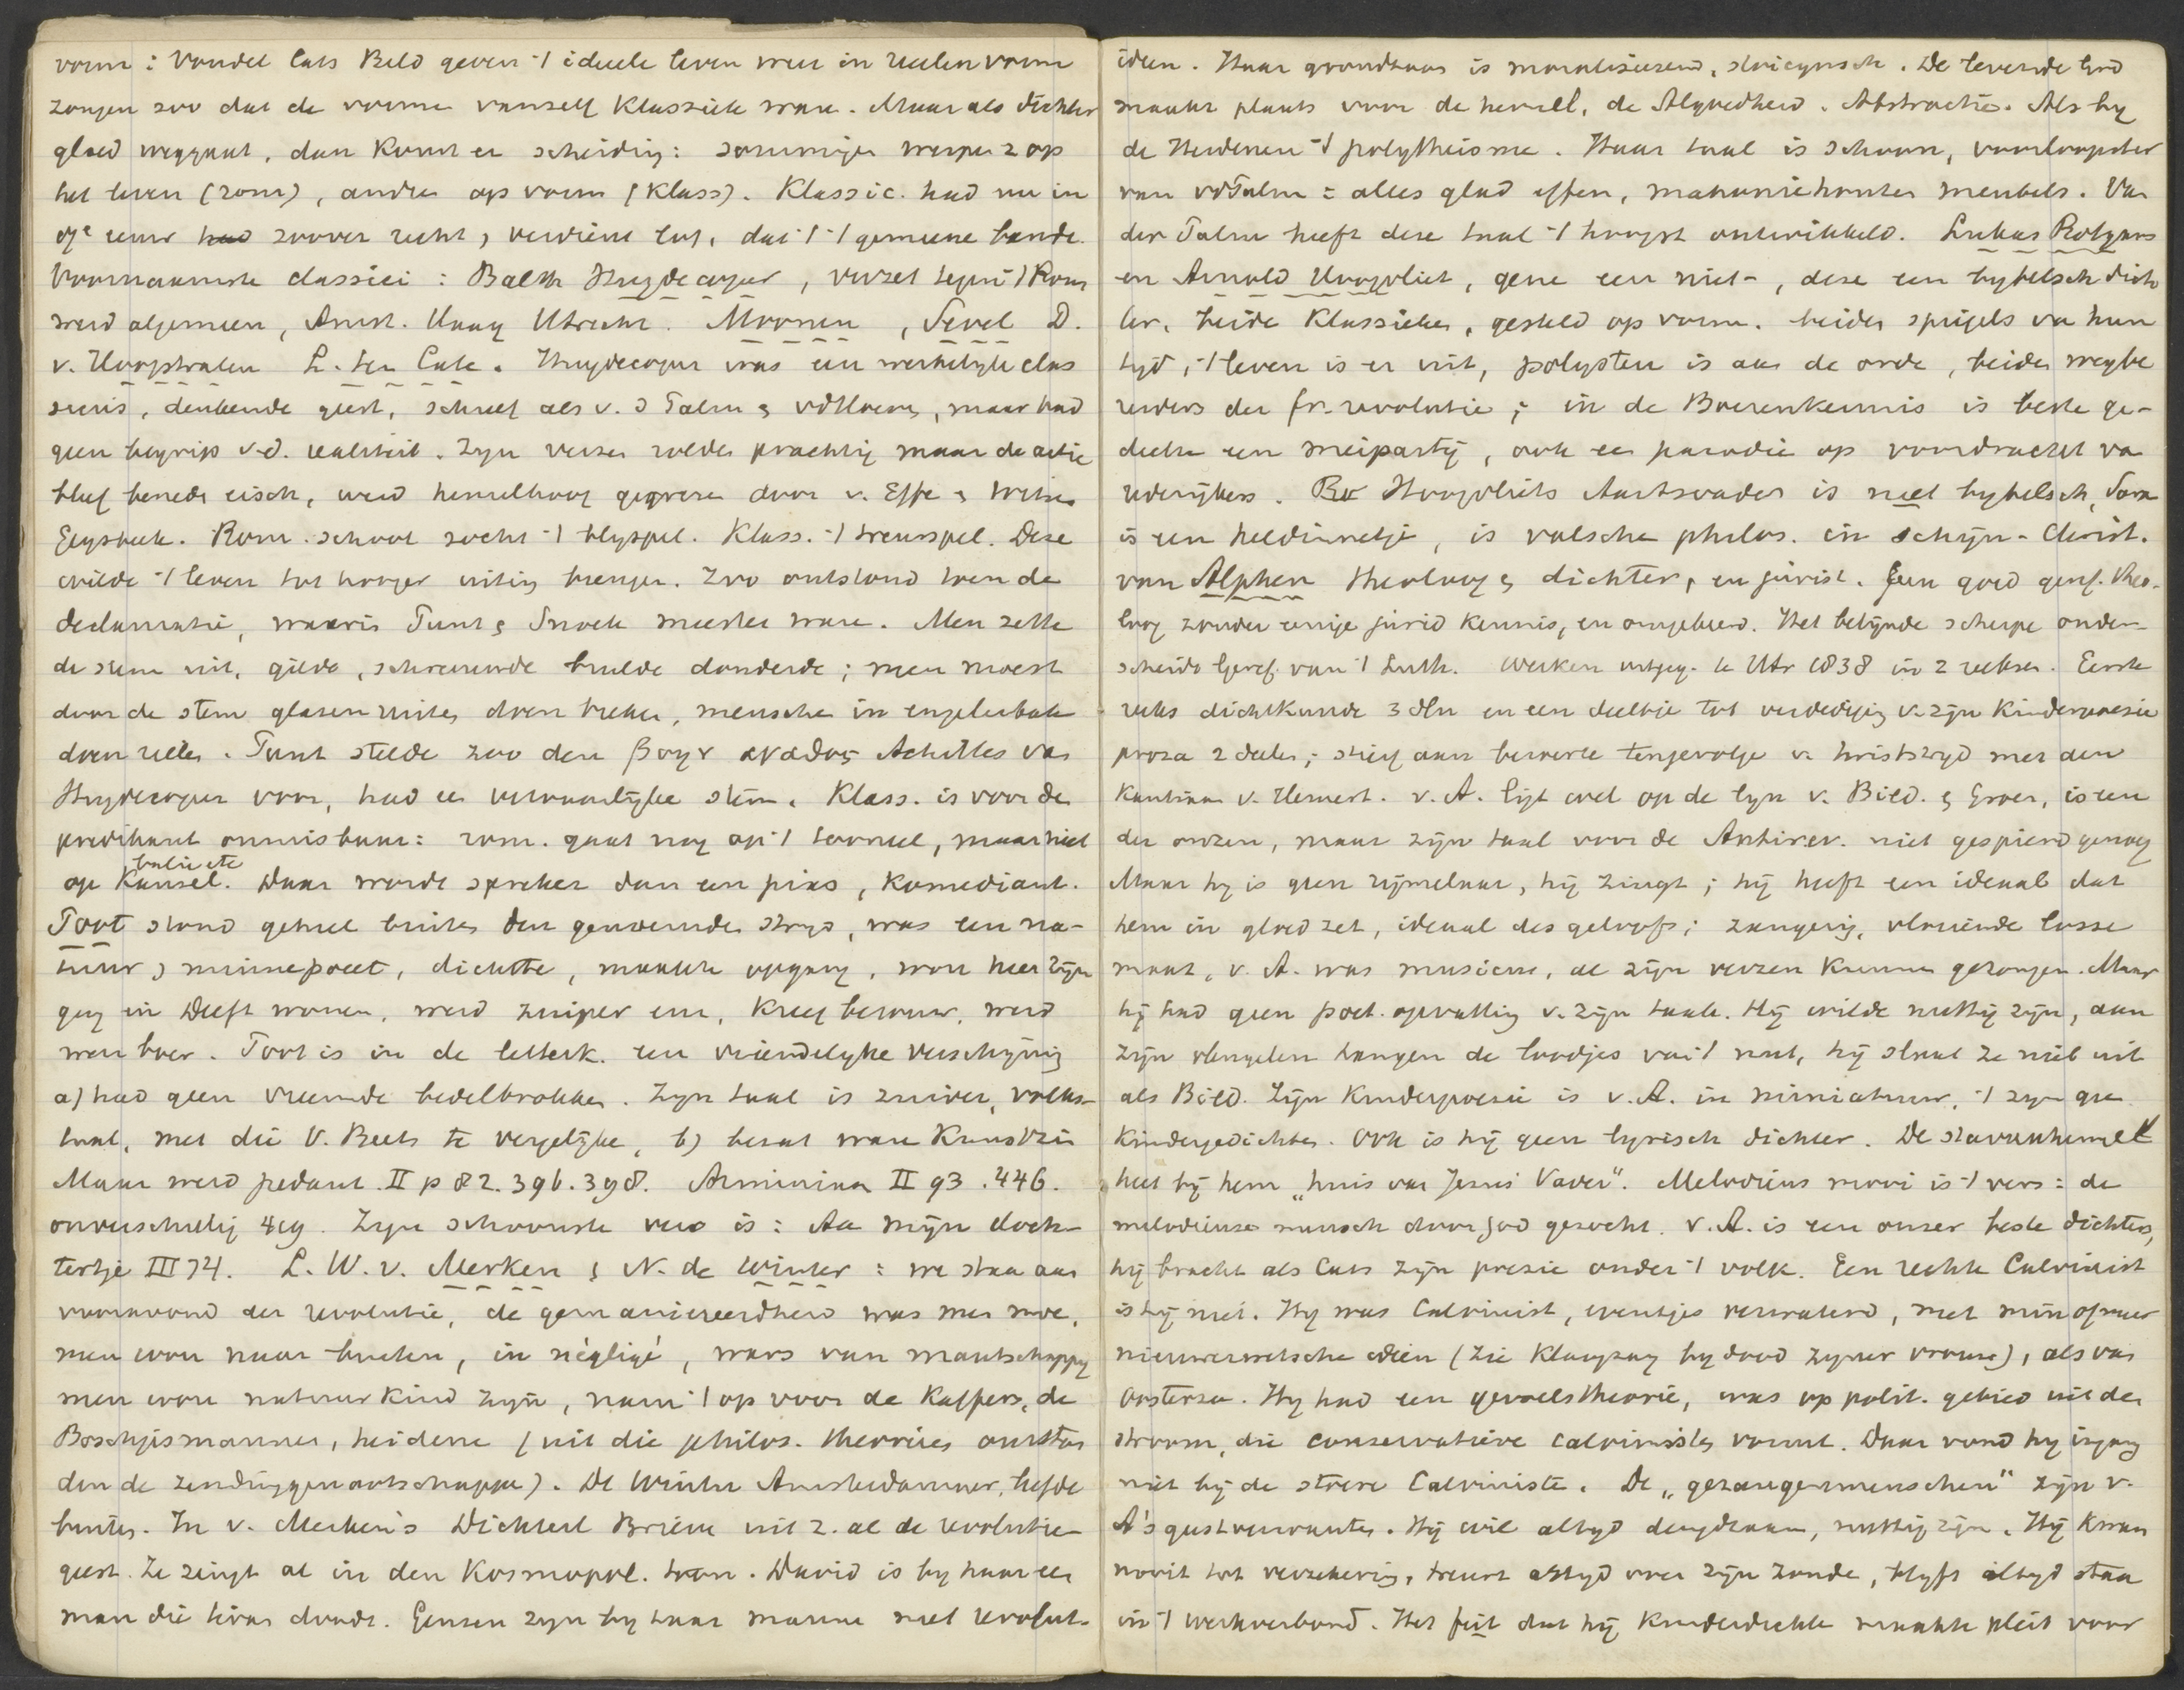 vorm: Vondel Cats Bild geven 't ideeele leven weer in reeelen vorm
zongen zoo dat de vorme vanself Klassiek ware. Maar als dichter
gloed weggaat, dan komt er scheiding: sommige werpen z op
het leven (rom), andre op vorm (Klass). Klassic. had nu in
eeuw zoover recht, verdient lof, dat 't 't gemeene bande.
Voornaamste classici: Balth Huydecoper, verzet tegen 't Rom
werd algemeen, Amst. Haag Utrecht. Moonen, Sewel D.
v. Hoogstraten L. ten Cate. Huydecoper was een werkelyke clas
sicus, denkende geest, schreef als v. d Palm & vdHoeven, maar had
geen begrip v.d. realiteit. Zyn verzen rolden prachtig maar de actie
bleef beneden eisch, werd hemelhoog geprezen door v. Effe & Witsen
Geysbeek. Rom. school zocht 't blyspel. Klass. 't treurspel. Deze
wilde 't leven tot hooger uiting brengen. Zoo ontstond toen de
declamatie, waaris Punt & Snoek meester ware. Men zette
de stem uit, gilde, schreeuwde brulde donderde; men moest
door de stem glasen ruiten doen breken, mensche in engelenbak
doen rillen. Punt stelde zoo den βοην αγαθος Achilles van
Huydecoper voor, had een vervaarlijke stem. Klass. is voor de
predikant onmisbaar: rom. gaat nog op 't tooneel, maar niet
balie etc
op Kansel. Daar wordt spreker dan een pias, komediant.
Poot stond geheel buiten den genoemden stryd, was een na-
tuur & minnepoeet, dichtte, maakte opgang, wou heer zijn
ging in Delft wonen, werd zuiper enz, kreeg berouw, werd
weer boer. Poot is in de letterk. een vriendelyke verschyning
a) had geen vreemde bedelbrokken. Zyn taal is zuiver, volks-
taal, met die V. Beets te vergelijke, b) bezat ware Kunstzin
Maar werd pedant. II p 82. 396. 398. Arminiaan II 93. 446.
onverschillig 419. Zyn schoonste vers is: Aa mijn doch-
tertje III 74. L. W. v. Merken & N. de Winter: we staa aan
vooravond der revolutie, de gemanieerdheid was men moe,
men wou naar buiten, in négligé, wars van maatschappy
men wou natuur kind zijn, nam 't op voor de Kaffers, de
Boschjismannen, heidene (uit die philos. theorie onston
den de zendinggenootschappe). De Winter Amsterdammer, liefde
buiten. In v. Merken's Dichterl Brieven uit z. al de revolutie
geest. Ze zingt al in den Kosmopol. toon. David is by haar een
man die kwaa doode. Geuzen zyn by haar manne met revolut-
ideen. Haar grondtoon is moraliseerend, stoicynsch. De levende God
maakt plaats voor de hemel, de Algoedheid. Abstractie. Als by
de Heidenen 't polytheisme. Haar taal is schoon, voorloopster
van vdPalm: alles glad effen, mahoniehouten meubels. Van
der Palm heeft deze taal 't hoogst ontwikkeld. Lukas Rotgans
en Arnold Hoogvliet, gene een niet-, deze een bybelsch dich
ter, beide Klassieken, gesteld op vorm. beiden spiegels va hun
tyd, 't leven is er uit, polysten is aan de orde, beiden wegbe
reiders der fr. revolutie; in de Boerenkermis is beste ge-
deelte een meiparty, ook een parodie op voordracht va
rederijkers. Hoogvliets Aartsvader is niet bybelsch, Sara
is een heldinnetje, is valsche philos. in schijn-Christ.
van Alphen theoloog & dichter, en jurist. Geen goed geref. theo-
loog zonder eenige jurid kennis, en omgekeerd. Het belijnde scherpe onder-
scheidt Geref. van 't Luth. Werken uitgeg. te Utr 1838 in 2 reeksen. Eerste
reeks dichtkunde 3 dln en een deeltje tot verdediging v. zijn Kinderpoesie
proza 2 deelen; stierf aan beroerte tengevolge v. twistryd met den
Kantiaan v. Hemert. v. A. ligt wel op de lyn v. Bild. & Groen, is een
der onzen, maar zijn taal voor de Antirev. niet gespierd genoeg
Maar hy is geen rijmelaar, hij zingt; hij heeft een ideaal dat
hem in gloed zet, ideaal des geloofs; zangerig, vloeiende losse
maat, v. A. was musicus, al zijn verzen kunnen gezongen. Maar
hij had geen poet. opvatting v. zijn taak. Hij wilde nuttig zijn, aan
zijn vleugelen hangen de loodjes van 't nut, hij slaat ze niet uit
als Bild. Zijn Kinderpoesie is v. A. in miniatuur, 't zyn geen
Kindergedichten. Ook is hij geen lyrisch dichter. De starrenhemel
heet bij hem „huis van Jesus Vader". Melodieus mooi is 't vers: de
melodieuse mensch door God gezocht. v. A. is een onzer beste dichters,
hij bracht als Cats zijn poezie onder 't volk. Een rechte Calvinist
is hij niet. Hy was Calvinist, eventjes verwaterd, met min of meer
nieuwerwetsche ideen (zie Klaagzang by dood zyner vrouw), als van
Oosterzee. Hy had een gevoelstheorie, was op polit. gebied uit den
stroom, die conservatieve calvinisten vormt. Daar vond hy ingang
niet bij de strenge Calviniste. De „gezangenmenschen" zijn v.
A's geestverwanten. Hij wil altyd deugdzaam, nuttig zijn. Hij kwam
nooit tot verzekering, treurt altyd over zijn zonde, blyft altyd staan
in 't werkverbond. Het feit dat hij kinderdichten maakte pleit voor